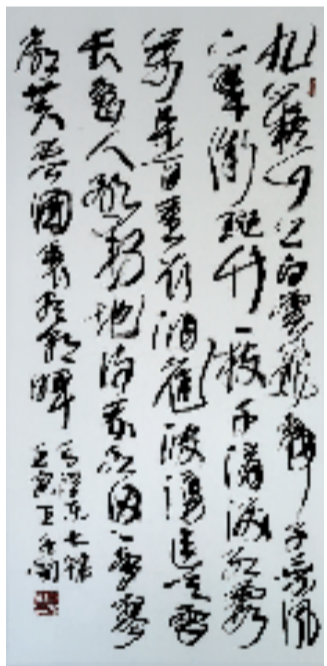 九嶷山上白雲飛帝子乘風
下翠微斑竹一枝千滴淚紅霞
萬朵百重衣洞庭波湧連天雪
長島人歌動地詩我欲因之夢寥
廓芙蓉國裏盡朝暉
毛澤東七律